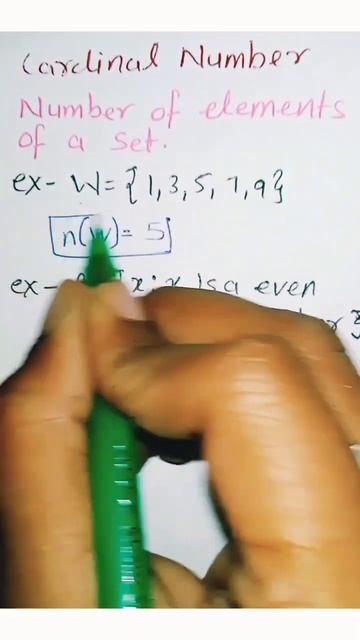 Cardinal Number
Number of elements
of a set.
ex- W = {1, 3, 5, 7, 9}
n(W) = 5
ex- x : x is a even